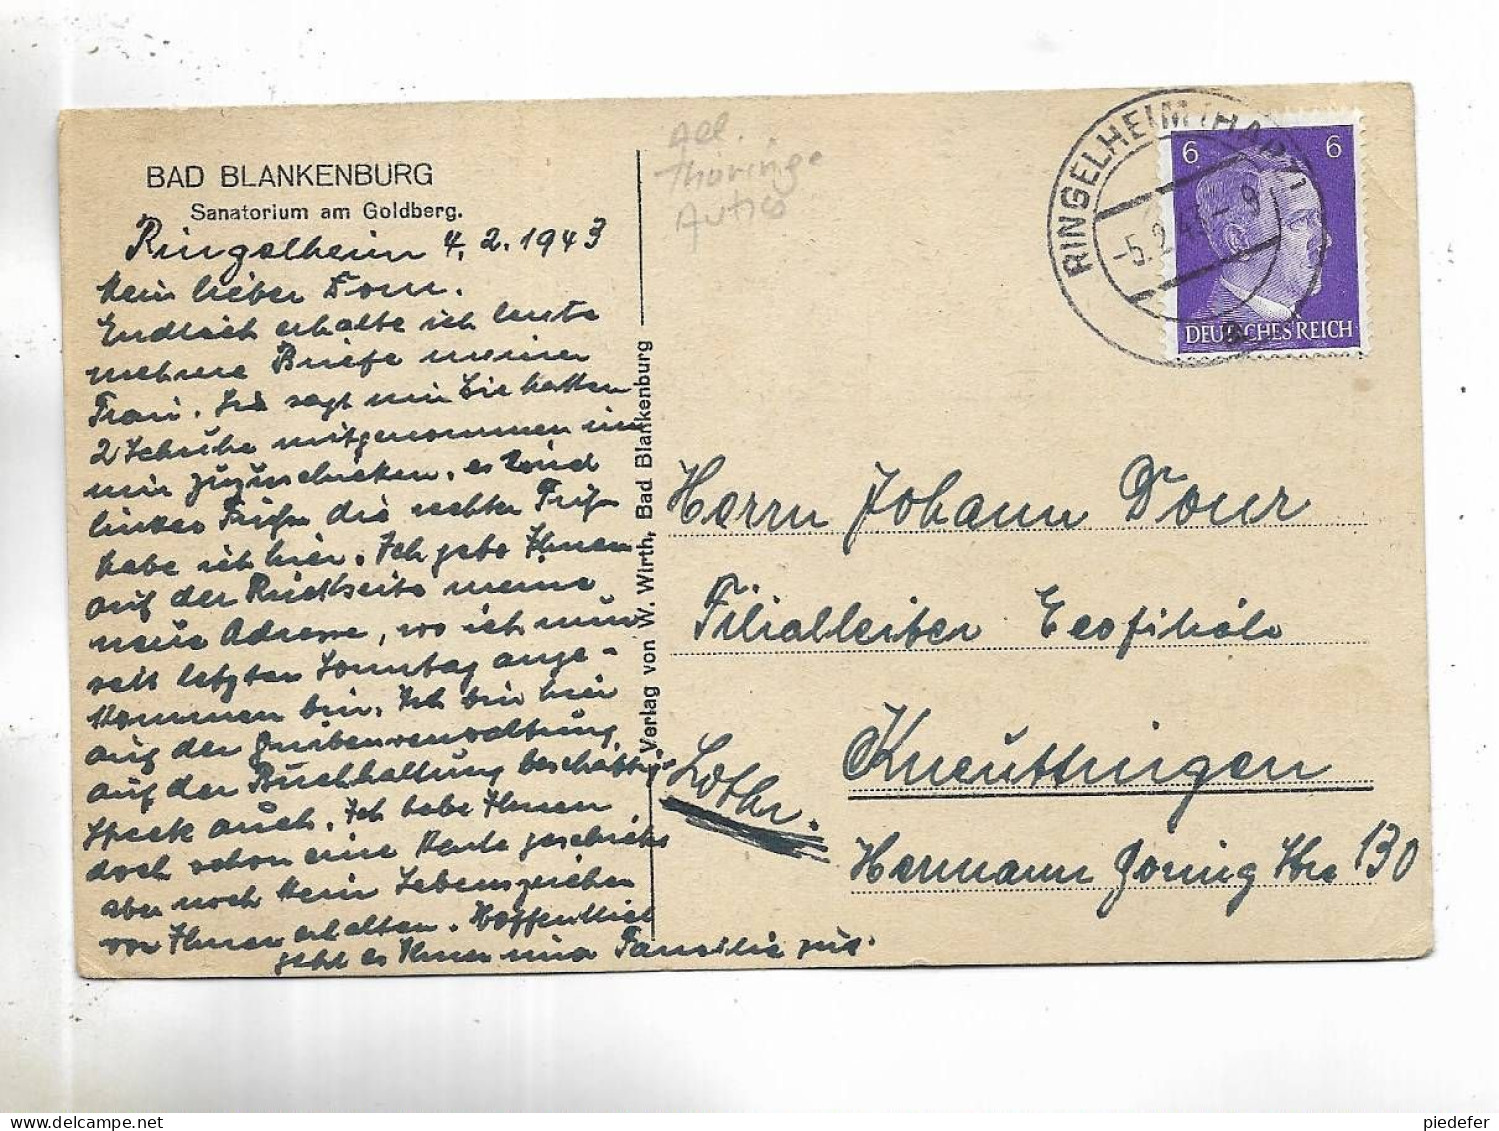 BAD BLANKENBURG
Sanatorium am Goldberg.
Ringelheim 4.2.1943
Mein lieber Dour.
Endlich erhalte ich heute
mehrere Briefe meiner
Frau. Sie sagt mir Sie hatten
2 Schuhe mitgenommen um
mir zuzuschicken. es sind
linker die rechte
habe ich hier. Ich gebe Ihnen
auf der Rückseite meine
neue Adresse, wo ich nun
seit letzten Sonntag ange-
kommen bin. Ich bin hier
auf der Grubenverwaltung
auf der Buchhaltung beschäftigt
auch. Ich habe Ihnen
doch schon eine Karte geschickt
aber noch kein Lebenszeichen
von Ihnen erhalten. Hoffentlich
geht es Ihnen und Familie gut.
Verlag von W. Wirth, Bad Blankenburg
All.
Thüringe
Autres
RINGELHEIM (HARZ)
-5.2.43-9
6 6
DEUTSCHES REICH
Herrn Johann Dour
Filialleiter Ecofiliale
Kneuttingen
Lothr.
Hermann Göring Str. 130
piedefer